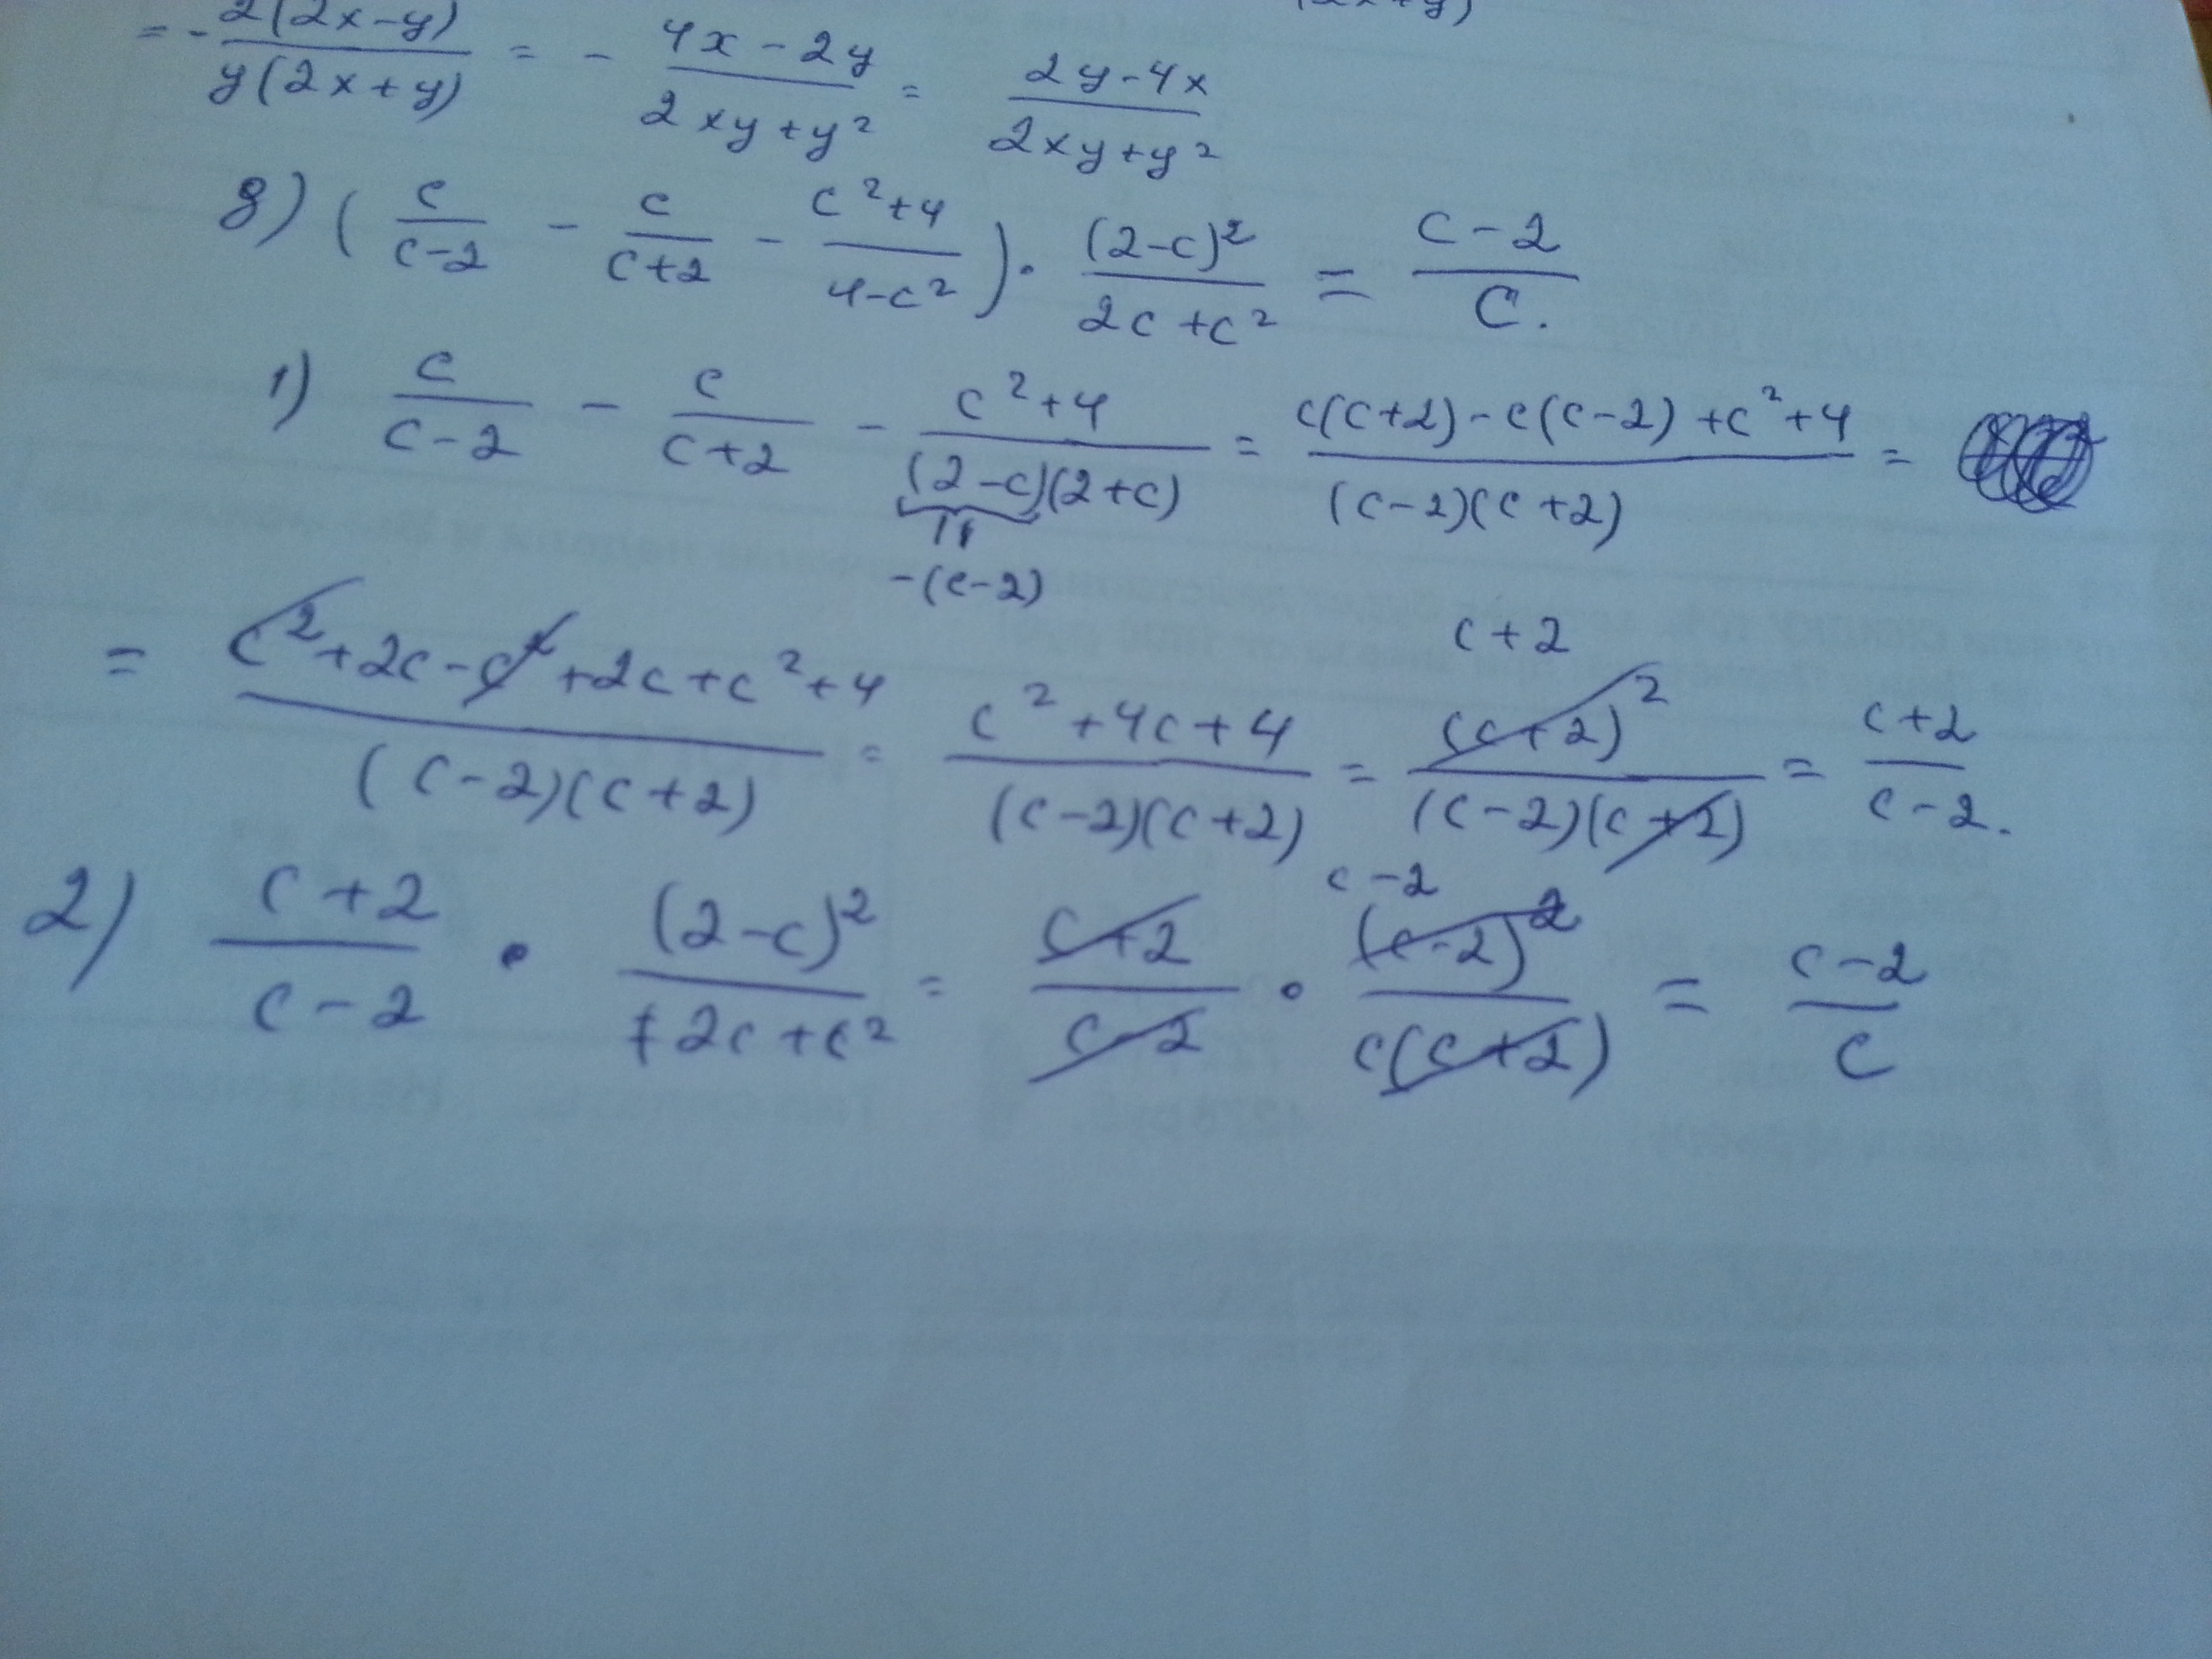 = - 2(2x-y) / y(2x+y) = - 4x-2y / 2xy+y² = 2y-4x / 2xy+y²
g) ( c/c-2 - c/c+2 - c²+4/4-c² ) · (2-c)²/2c+c² = c-2/c.
1) c/c-2 - c/c+2 - c²+4/(2-c)(2+c) = c(c+2)-c(c-2)+c²+4/(c-2)(c+2) =
-(c-2)
= c²+2c-c²+2c+c²+4/(c-2)(c+2) = c²+4c+4/(c-2)(c+2) = (c+2)²/(c-2)(c+2) = c+2/c-2.
c+2
2) c+2/c-2 · (2-c)²/+2c+c² = c+2/c-2 · (c-2)²/c(c+2) = c-2/c
c-2